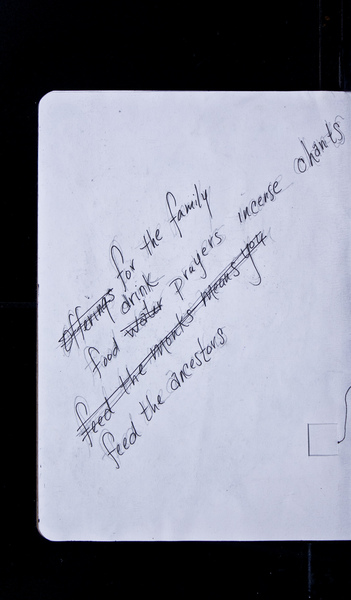 Offerings for the family
food water drink prayers incense chants
feed the monks means you
feed the ancestors